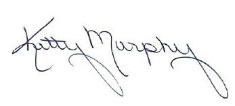 Kitty Murphy